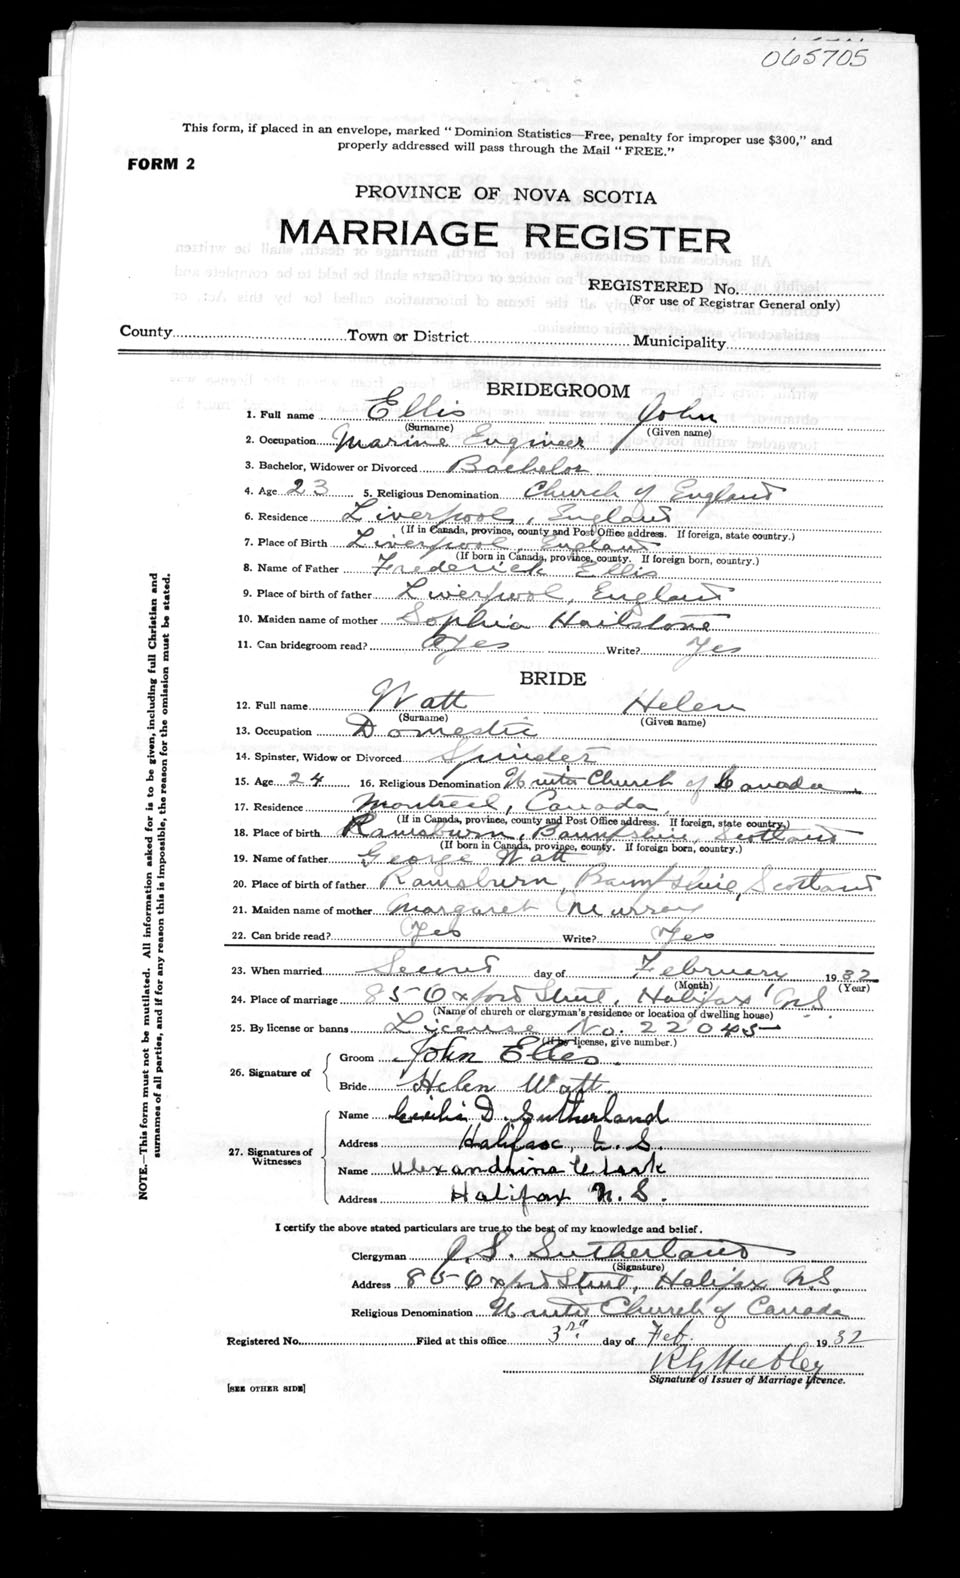 065705
This form, if placed in an envelope, marked "Dominion Statistics—Free, penalty for improper use $300," and
properly addressed will pass through the Mail "FREE."
FORM 2
PROVINCE OF NOVA SCOTIA
MARRIAGE REGISTER
REGISTERED No.
(For use of Registrar General only)
County Town or District Municipality
BRIDEGROOM
1. Full name Ellis John
(Surname) (Given name)
2. Occupation Marine Engineer
3. Bachelor, Widower or Divorced Bachelor
4. Age 23 5. Religious Denomination Church of England
6. Residence Liverpool, England
(If in Canada, province, county and Post Office address. If foreign, state country.)
7. Place of Birth Liverpool, England
(If born in Canada, province, county. If foreign born, country.)
8. Name of Father Frederick Ellis
9. Place of birth of father Liverpool, England
10. Maiden name of mother Sophia Hailstone
11. Can bridegroom read? Yes Write? Yes
BRIDE
12. Full name Watt Helen
(Surname) (Given name)
13. Occupation Domestic
14. Spinster, Widow or Divorced Spinster
15. Age 24 16. Religious Denomination United Church of Canada
17. Residence Montreal, Canada
(If in Canada, province, county and Post Office address. If foreign, state country.)
18. Place of birth Ramsburn, Bamfshire, Scotland
(If born in Canada, province, county. If foreign born, country.)
19. Name of father George Watt
20. Place of birth of father Ramsburn, Bamfshire, Scotland
21. Maiden name of mother Margaret Murray
22. Can bride read? Yes Write? Yes
23. When married Second day of February 1932
(Month) (Year)
24. Place of marriage 85 Oxford Street, Halifax, N.S.
(Name of church or clergyman's residence or location of dwelling house)
25. By license or banns License No. 22045
(If by license, give number.)
26. Signature of
Groom John Ellis.
Bride Helen Watt
27. Signatures of
Witnesses
Name D. Sutherland
Address Halifax, N.S.
Name Alexandrina Clark
Address Halifax N.S.
I certify the above stated particulars are true to the best of my knowledge and belief.
Clergyman J. S. Sutherland
(Signature)
Address 85 Oxford Street, Halifax N.S.
Religious Denomination United Church of Canada
Registered No. Filed at this office 3rd. day of Feb. 1932
R G Hubley
Signature of Issuer of Marriage Licence.
[SEE OTHER SIDE]
NOTE.—This form must not be mutilated. All information asked for is to be given, including full Christian and
surnames of all parties, and if for any reason this is impossible, the reason for the omission must be stated.